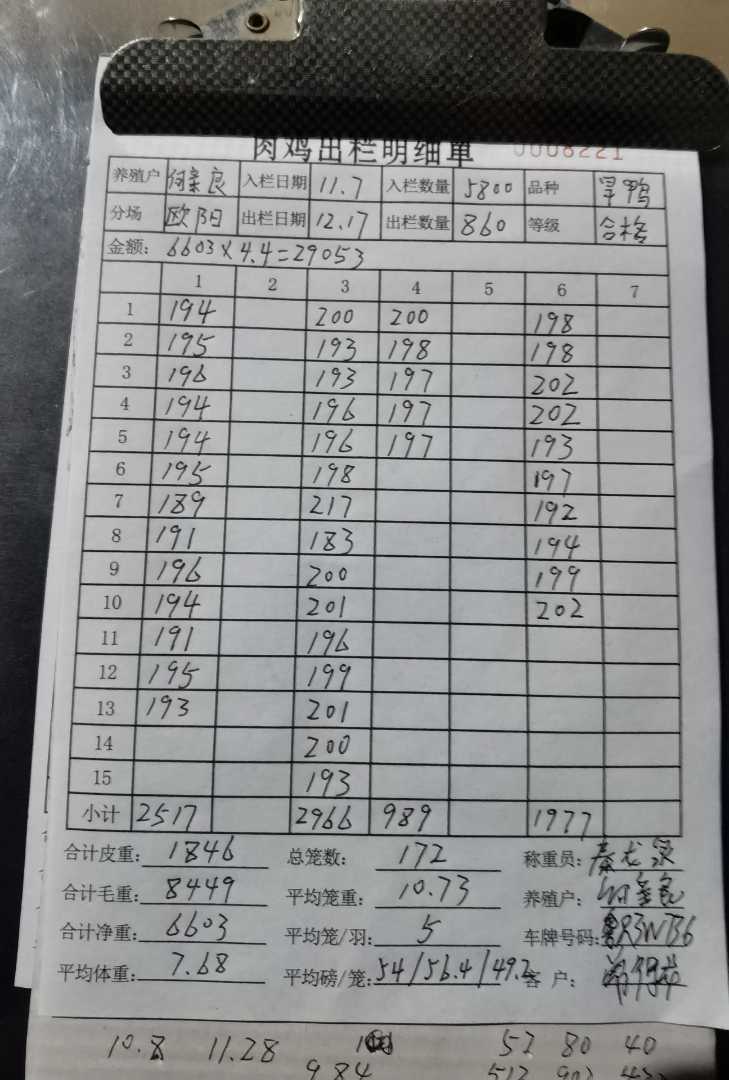 肉鸡出栏明细单 0008221
养殖户 入栏日期 11.7 入栏数量 5800 品种 旱鸭
分场 欧阳 出栏日期 12.17 出栏数量 860 等级 合格
金额: 6603×4.4=29053
1 2 3 4 5 6 7
1 194 200 200 198
2 195 193 198 198
3 196 193 197 202
4 194 196 197 202
5 194 196 197 193
6 195 198 197
7 189 217 192
8 191 183 194
9 196 200 199
10 194 201 202
11 191 196
12 195 199
13 193 201
14 200
15 193
小计 2517 2966 989 1977
合计皮重: 1846 总笼数: 172 称重员:
合计毛重: 8449 平均笼重: 10.73 养殖户:
合计净重: 6603 平均笼/羽: 5 车牌号码:
平均体重: 7.68 平均磅/笼: 54/56.4/49.2 客户:
10.8 11.28 52 80 40
984